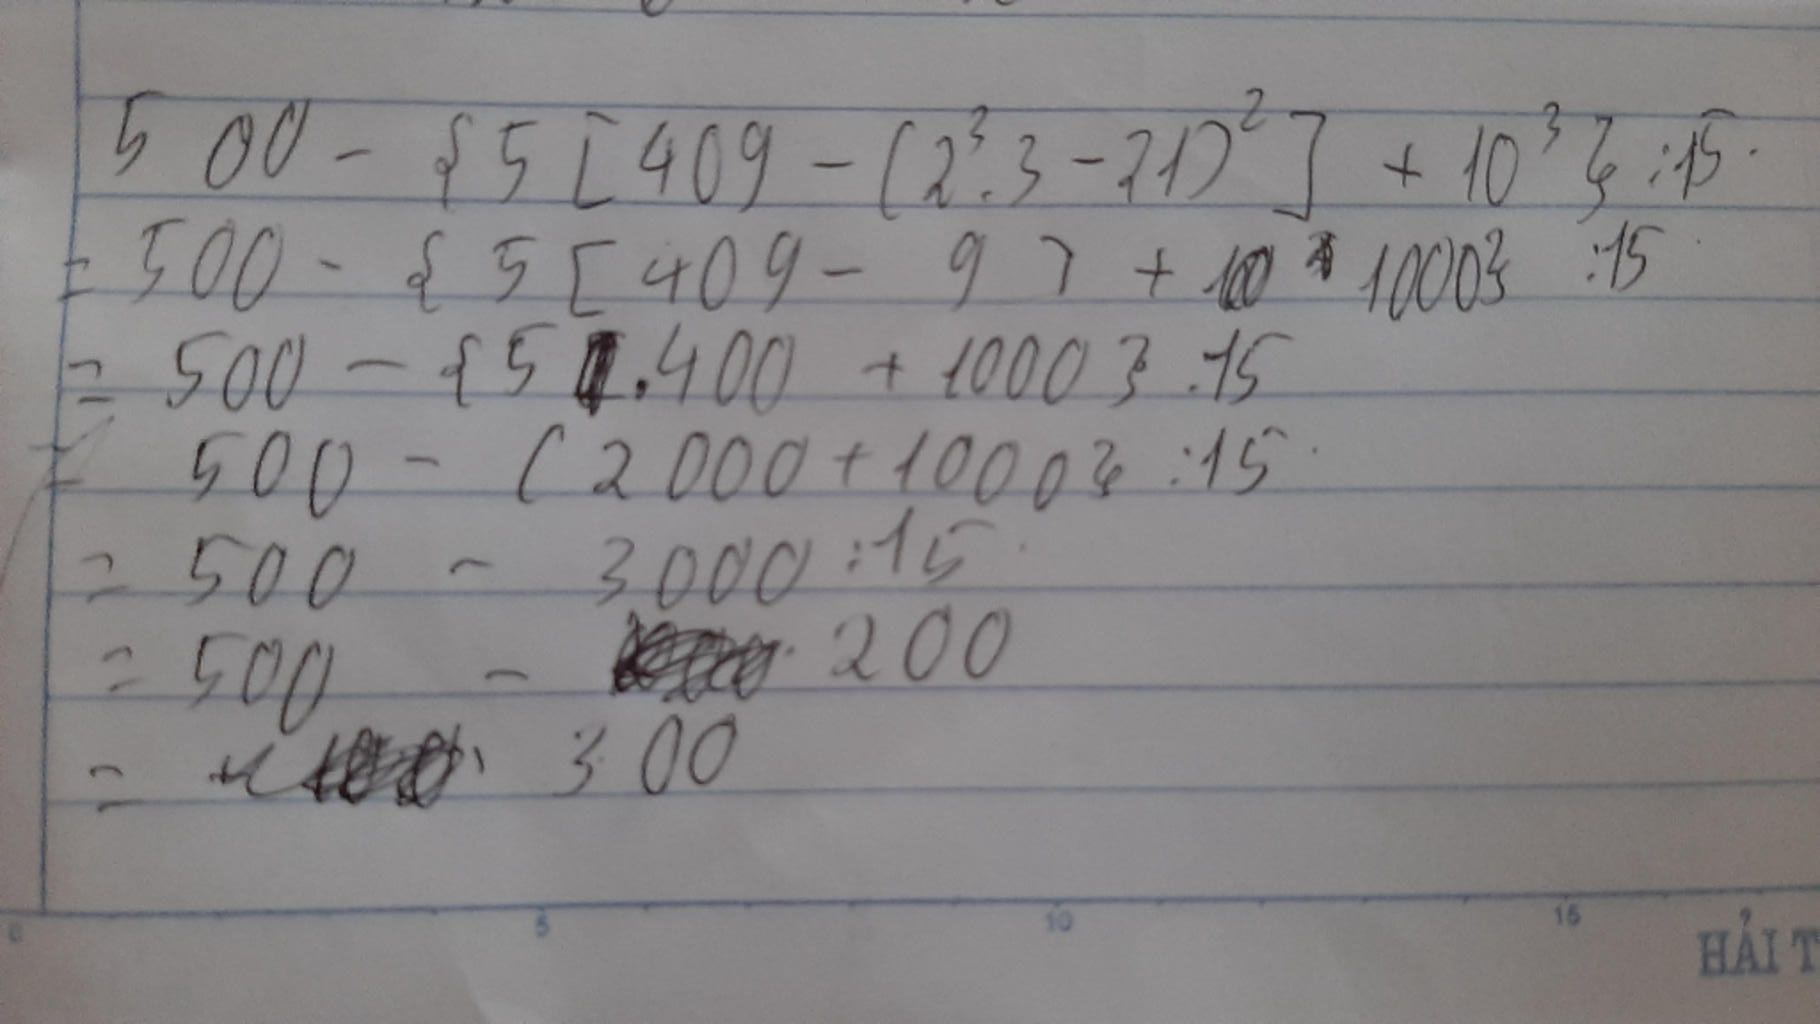 500 - {5[409 - (2³.3 - 21)²] + 10³} :15.
= 500 - {5[409 - 9] + 1000} :15.
= 500 - {5.400 + 1000} :15
= 500 - (2000 + 1000} :15.
= 500 - 3000 :15.
= 500 - 200
= 300
0 5 10 15
HẢI T